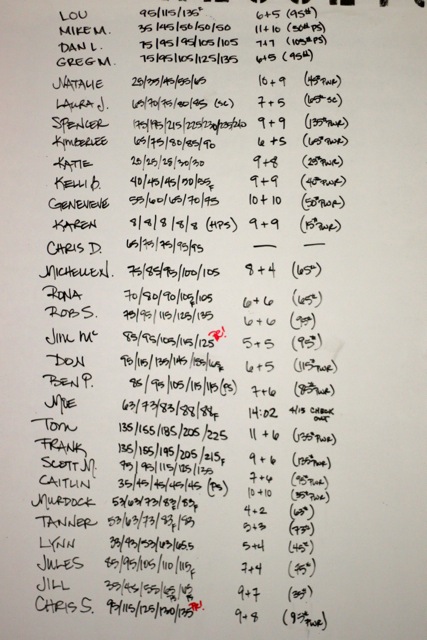 LOU 95/115/135# 6+5 (95#)
MIKE M. 35/45/50/50/50 11+10 (30# PS)
DAN L. 75/95/95/105/105 7+7 (105# PS)
GREG M. 75/95/105/125/135 6+5 (95#)
NATALIE 25/35/45/55/65 10+9 (45# PWR)
LAURA J. 65/70/75/80/85 (SC) 7+5 (65# SC)
SPENCER 175/195/215/225/230/235/240 9+9 (135# PWR)
KIMBERLEE 65/75/80/85/90 6+5 (65# PWR)
KATIE 20/25/25/30/30 9+8 (25# PWR)
KELLI B. 40/45/45/50/55F 9+9 (40# PWR)
GENEVIEVE 55/60/65/70/75 10+10 (50# PWR)
KAREN 8/8/8/8/8 (HPS) 9+9 (15# PWR)
CHRIS D. 65/75/75/95/95 — —
MICHELLE N. 75/85/95/100/105 8+4 (65#)
RONA 70/80/90/105F/105 6+6 (65#)
ROB S. 75/95/115/125/135 6+6 (95#)
JIM MC 85/95/105/115/125 PR! 5+5 (95#)
DON 95/115/135/145/155/165F 6+5 (115# PWR)
BEN P. 85/95/105/115/115 (PS) 7+6 (85# PWR)
63/73/83/88/88F 14:02 4/13 CHECK OUT
TOM 135/155/185/205/225 11+6 (135# PWR)
FRANK 135/155/195/205/215F 9+6 (135# PWR)
SCOTT M. 75/95/115/125/135 7+6 (95# PWR)
CAITLIN 35/45/45/45/45 (PS) 10+10 (35# PWR)
MURDOCK 53/63/73/83/83F 4+2 (63#)
TANNER 53/63/73/83F/83 5+3 (73#)
LYNN 33/43/53/63/65.5 5+4 (45#)
JULES 85/95/105/110/115F 7+4 (75#)
JILL 35/45/55/65/65 9+7 (35#)
CHRIS S. 95/115/125/130/135 PR! 9+8 (95# PWR)